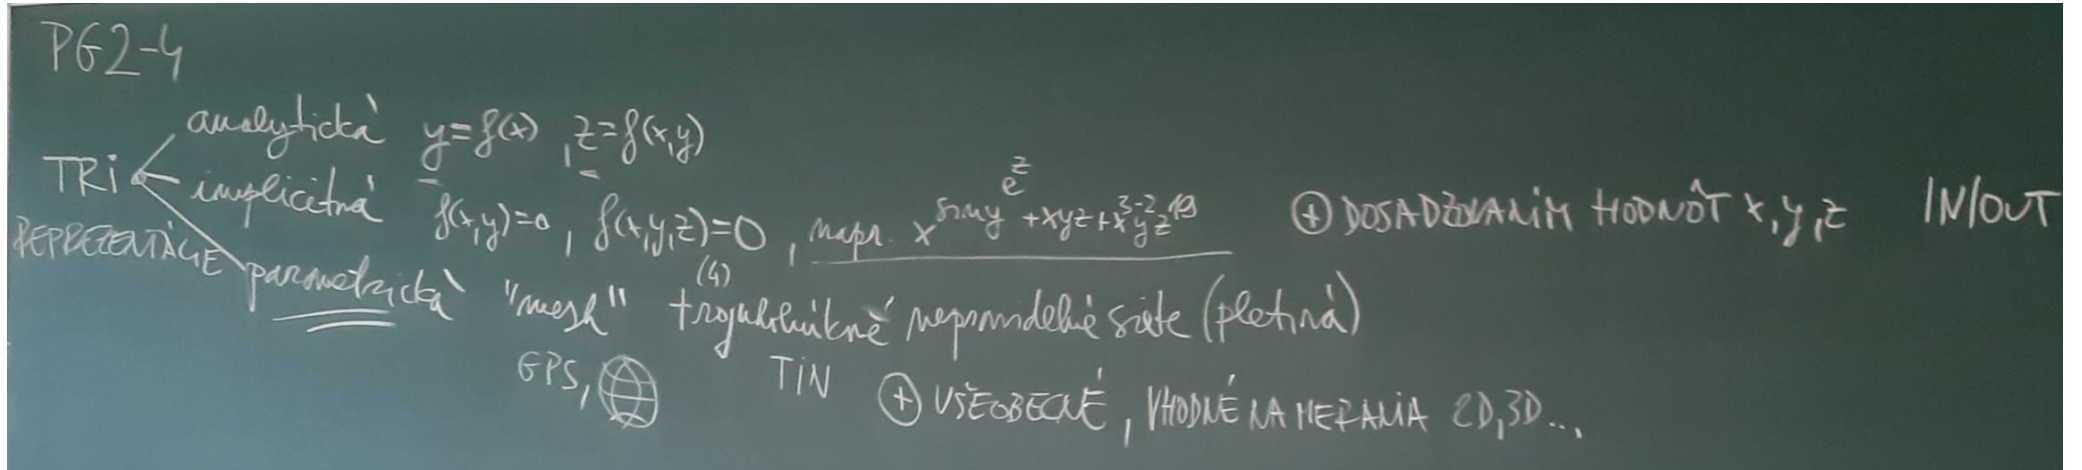 PG2-4
analytická y=f(x), z=f(x,y)
TRI implicitná f(x,y)=0, f(x,y,z)=0, napr. x^{sin y^{e^z}}+xyz+x^3y^{-2}z^{19} ⊕ DOSADZOVANÍM HODNÔT x,y,z IN/OUT
REPREZENTÁCIE parametrická "mesh" (4) trojuholníkové nepravidelné siete (pletivá)
GPS, TIN ⊕ VŠEOBECNÉ, VHODNÉ NA MERANIA 2D,3D...